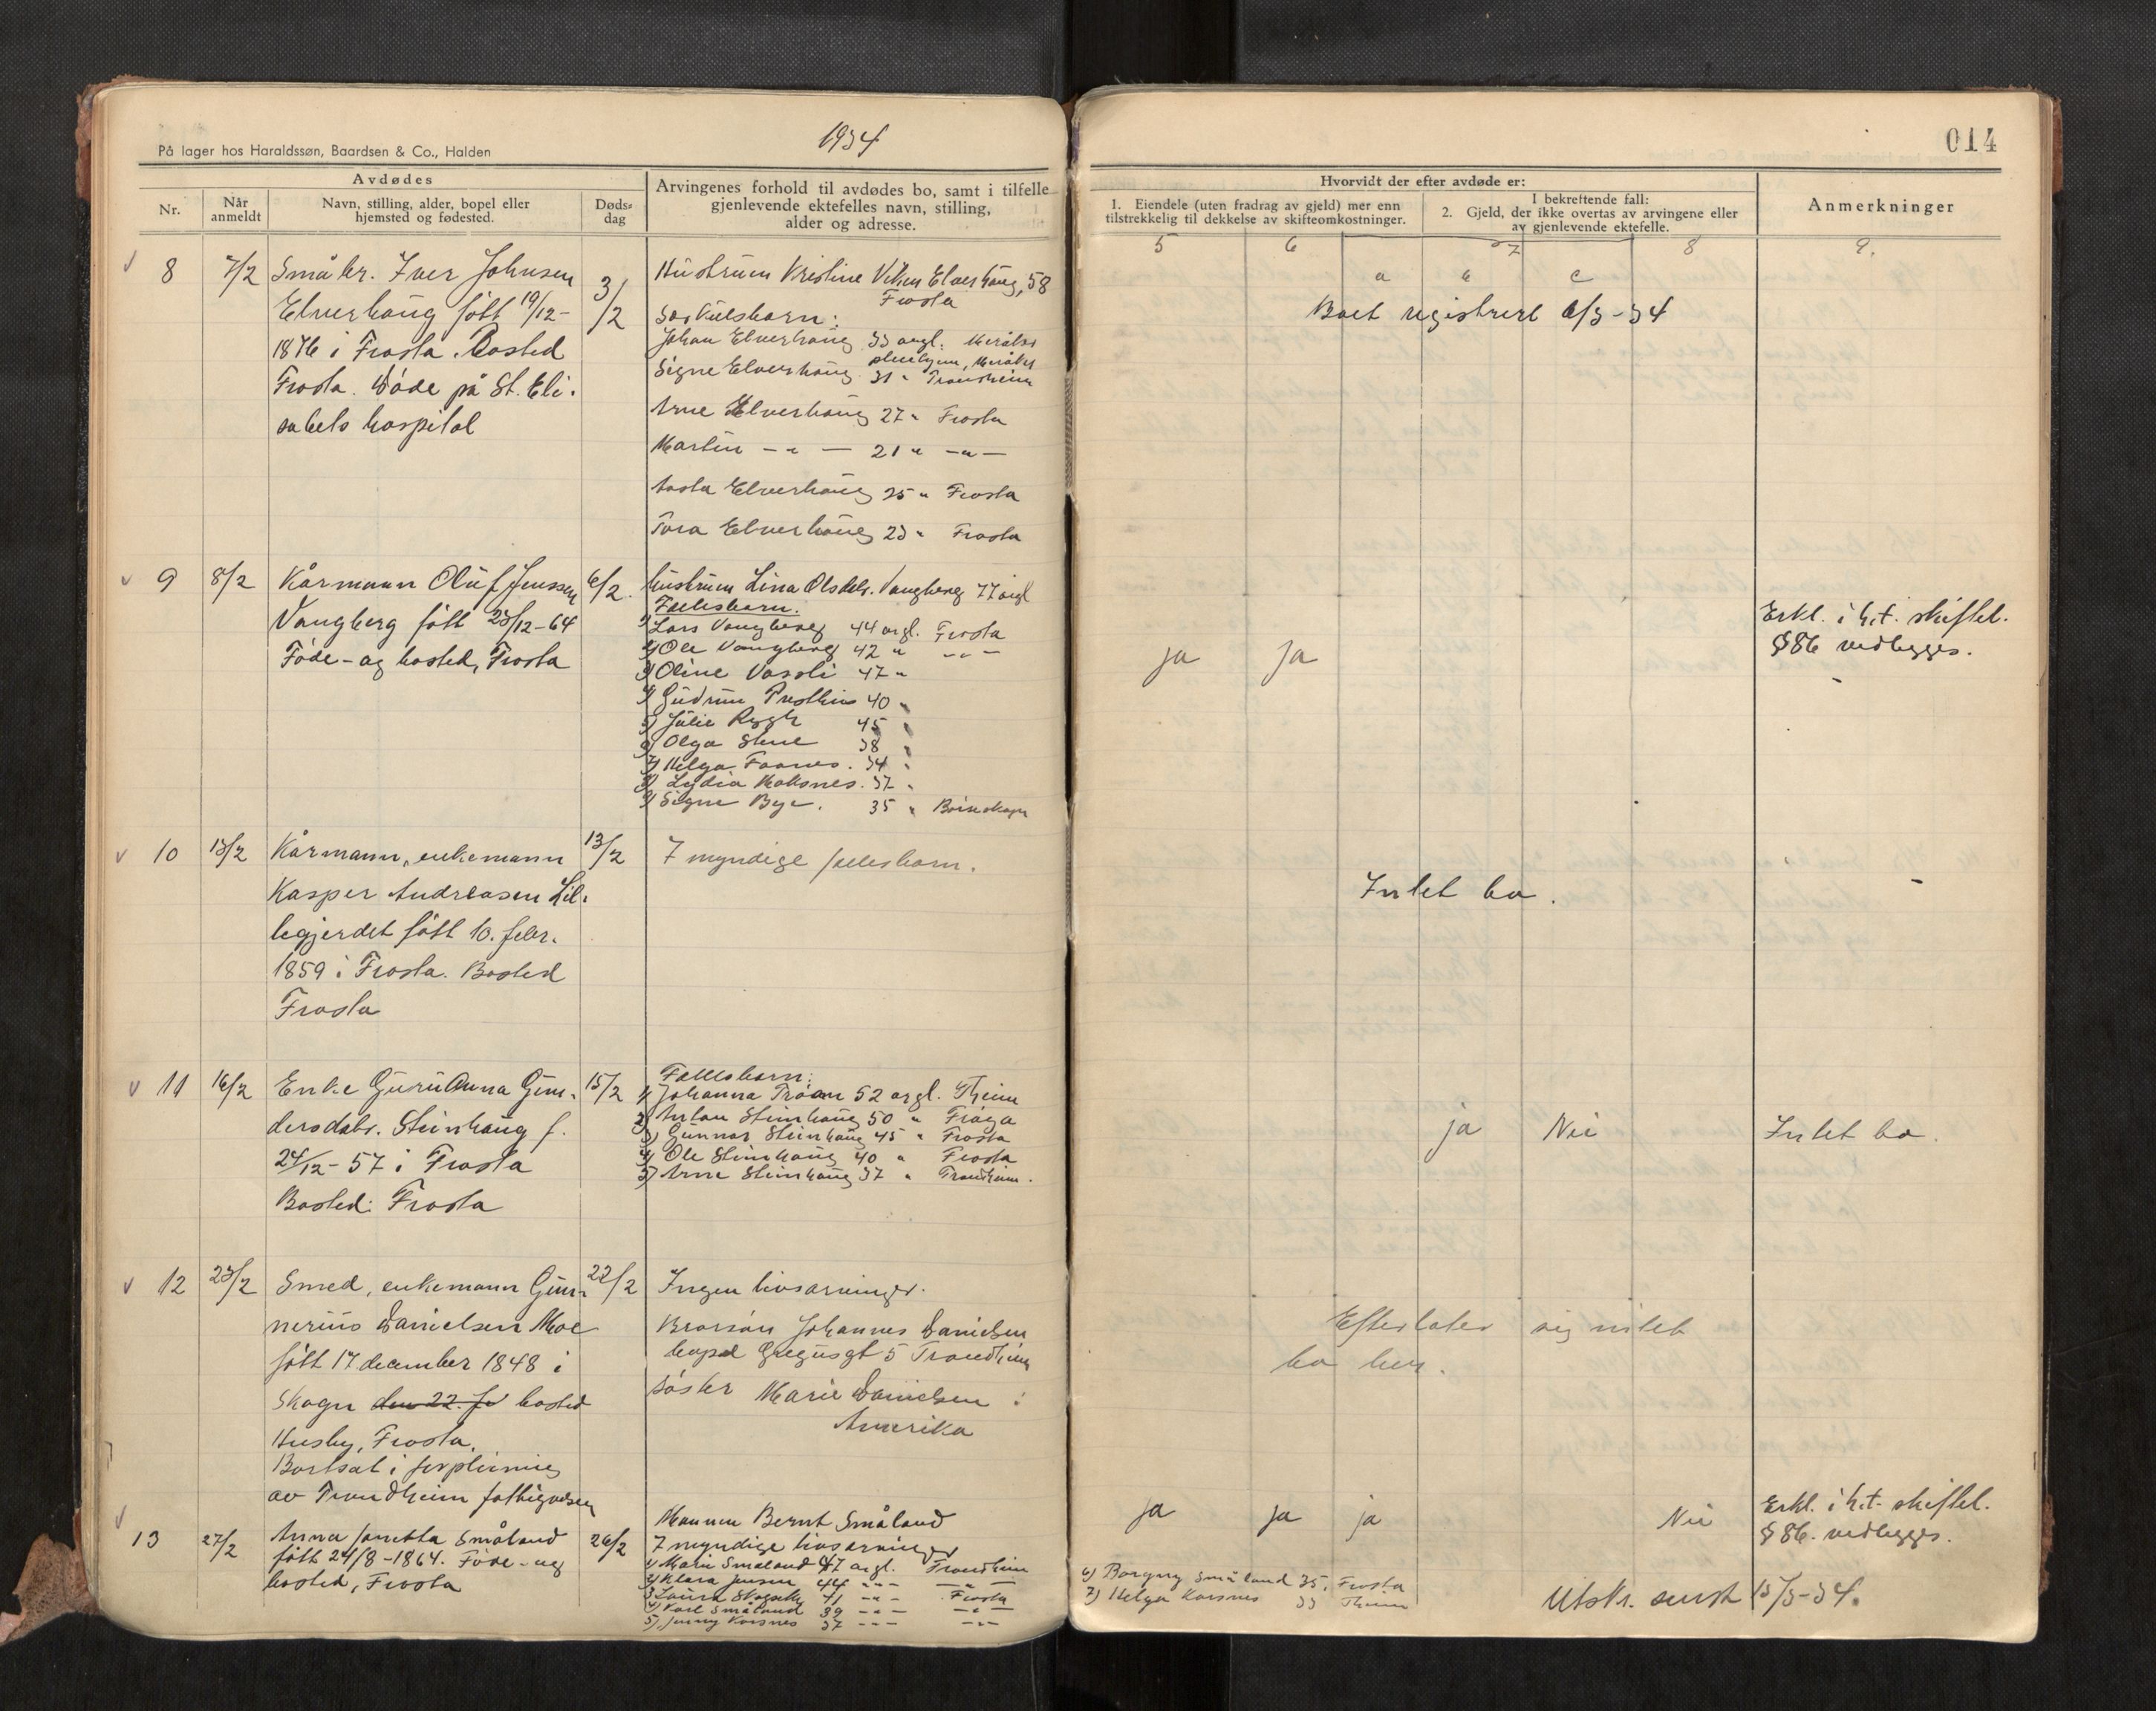 1934
På lager hos Haraldssøn, Baardsen & Co., Halden
Avdødes
Nr.
Når anmeldt
Navn, stilling, alder, bopel eller hjemsted og fødested.
Døds-dag
Arvingenes forhold til avdødes bo, samt i tilfelle
gjenlevende ektefelles navn, stilling,
alder og adresse.
8 7/2 Småbr. Iver Johnsen 3/2
Elverhaug født 19/12-
1876 i Frosta. Bosted
Frosta. Døde på St. Eli-
sabets hospital
Hustruen Kristine Elverhaug, 58
Frosta
Særkulsbarn:
Johan Elverhaug 33 årgl. Meråker
Signe Elverhaug 31 " Trondheim
Arne Elverhaug 27 " Frosta
Martin -"- 21 " -"-
Aasta Elverhaug 25 " Frosta
Tora Elverhaug 23 " Frosta
9 8/2 Kårmann Oluf Jenssen 6/2.
Vangberg født 23/12-64
Føde- og bosted, Frosta
Hustruen Lina Olsdtr. Vangberg 77 årgl
Fællesbarn.
1) Lars Vangberg 44 årgl. Frosta
2) Ole Vangberg 42 " -"-
3) Oline Vasoli 47 "
4) Gudrun 40 "
5) Julie Rygh 45 "
6) Olga 38 "
7) Helga Faanes. 34 "
8) Lydia Moksnes. 37 "
9) Signe Bye. 35 "
10 13/2 Kårmann, enkemann 13/2
Kasper Andreasen Lil-
legjerdet født 10. febr.
1859 i Frosta. Bosted
Frosta
7 myndige fellesbarn.
11 16/2 Enke Guruanna Gun- 15/2
dersdatr. Steinhaug f.
24/12-57 i Frosta
Bosted: Frosta
Fællesbarn:
1) Johanna Tröan 52 årgl. Theim
2) Anton Steinhaug 50 "
3) Gunnar Steinhaug 45 " Frosta
4) Ole Steinhaug 40 " Frosta
5) Arne Steinhaug 37 " Trondheim.
12 23/2 Smed, enkemann Gun- 22/2
nerius Danielsen Moe
født 17 december 1848 i
Skogn den 22. fe bosted
Husby, Frosta.
Bortsat i forpleining
av Trondheim fattigvesen
Ingen livsarvinger.
Brorsøn Johannes Danielsen
bopel Gregusgt 5 Trondheim
søster Marie Danielsen
Amerika
13 27/2 Anna Småland 26/2
født 24/8-1864. Føde- og
bosted, Frosta
Mannen Bernt Småland
7 myndige livsarvinger
1) Marie Småland 47 årgl. Trondheim
2) Klara Jensen 44 -"- -"-
3) Laura 41 -"- Frosta
4) Karl Småland 39 -"- -"-
5) Jenny Korsnes 37 -"- -"-
014
Hvorvidt der efter avdøde er:
1. Eiendele (uten fradrag av gjeld) mer enn
tilstrekkelig til dekkelse av skifteomkostninger.
I bekreftende fall:
2. Gjeld, der ikke overtas av arvingene eller
av gjenlevende ektefelle.
Anmerkninger
5 6 7 8 9.
a b c
Boet registrert 6/3-34
ja ja
Erkl. i h.t. skiftel.
§86 vedlegges.
Intet bo.
ja Nei Intet bo.
Efterlater sig intet
bo her.
ja ja ja Nei
Erkl. i h.t. skiftel.
§86. vedlegges.
6) Borgny Småland 35, Frosta
7) Helga Korsnes 33 Theim
Utskr. sendt 15/3-34.